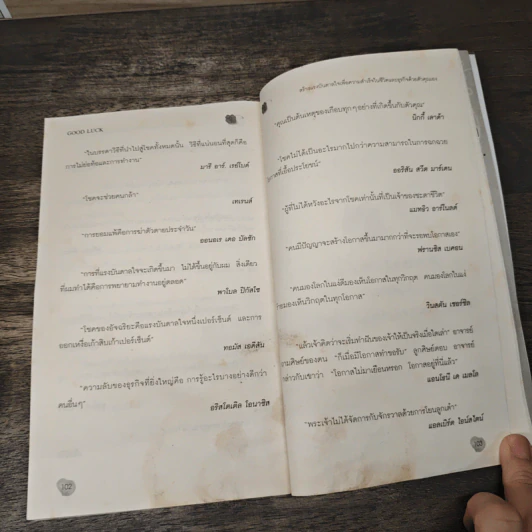 GOOD LUCK
"ในบรรดาวิธีที่นำไปสู่โชคทั้งหมดนั้น วิธีที่แน่นอนที่สุดก็คือ
การไม่ย่อท้อและการทำงาน"
มารี อาร์. เรย์โบด์
"โชคจะช่วยคนกล้า"
เทเรนส์
"การยอมแพ้คือการฆ่าตัวตายประจำวัน"
ออนอเร เดอ บัลซัก
"การที่แรงบันดาลใจจะเกิดขึ้นมา ไม่ได้ขึ้นอยู่กับผม สิ่งเดียว
ที่ผมทำได้คือการพยายามทำงานอยู่ตลอด"
พาโบล ปิกัสโซ
"โชคของอัจฉริยะคือแรงบันดาลใจหนึ่งเปอร์เซ็นต์ และการ
ออกเหงื่อเก้าสิบเก้าเปอร์เซ็นต์"
ทอมัส เอดิสัน
"ความลับของธุรกิจที่ยิ่งใหญ่คือ การรู้อะไรบางอย่างดีกว่า
คนอื่นๆ"
อริสโตเติล โอนาซิส
102
"คุณเป็นต้นเหตุของเกือบทุกๆ อย่างที่เกิดขึ้นกับตัวคุณ"
นิกกี้ เลาด้า
"โชคไม่ได้เป็นอะไรมากไปกว่าความสามารถในการฉกฉวย
ที่เอื้อประโยชน์"
ออริสัน สวีต มาร์เดน
"ผู้ที่ไม่ได้หวังอะไรจากโชคเท่านั้นที่เป็นเจ้าของชะตาชีวิต"
แมทธิว อาร์โนลด์
"คนมีปัญญาจะสร้างโอกาสขึ้นมามากกว่าที่จะรอพบโอกาสเอง"
ฟรานซิส เบคอน
"คนมองโลกในแง่ดีมองเห็นโอกาสในทุกวิกฤต คนมองโลกในแง่
มองเห็นวิกฤตในทุกโอกาส"
วินสตัน เชอร์ชิล
"แล้วเจ้าคิดว่าจะเริ่มทำฝันของเจ้าให้เป็นจริงเมื่อใดเล่า" อาจารย์
ถามศิษย์ของตน "ก็เมื่อมีโอกาสทำขอรับ" ลูกศิษย์ตอบ อาจารย์
กล่าวกับเขาว่า "โอกาสไม่มาเยือนหรอก โอกาสอยู่ที่นี่แล้ว"
แอนโธนี เด เมลโล
"พระเจ้าไม่ได้จัดการกับจักรวาลด้วยการโยนลูกเต๋า"
แอลเบิร์ต ไอน์สไตน์
103